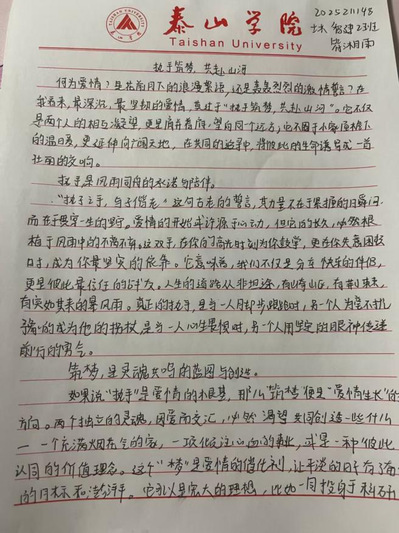 泰山学院
Taishan University
2025211143
林智建25班
昝湘雨
执手筑梦,共赴山河
何为爱情?是花前月下的浪漫絮语,还是轰轰烈烈的激情誓言?在
我看来,最深沉、最坚韧的爱情,莫过于“执手筑梦,共赴山河”。它不仅
是两个人的相互凝望,更是肩并着肩,望向同一远方;它不囿于小家庭檐下
的温暖,更延伸向广阔天地,在共同的追寻中,将彼此的生命谱写成一首
壮丽的交响。
执手是风雨同舟的承诺与陪伴。
“执子之手,与子偕老”这句古老的誓言,其力量不在于牵手的瞬间,
而在于贯穿一生的坚守。爱情的开始或许源于心动,但它的长久,必然根
植于风雨中的不离不弃。这双手,在你得意时为你鼓掌,更在你失意困顿
时,成为你最坚实的依靠。它意味着,我们不仅是分享快乐的伴侣,
更是彼此最信任的战友。人生的道路从非坦途,有崇山峻岭,有荆棘,
有突如其来的暴风雨。真正的执手,是当一人脚步踉跄时,另一个人毫不犹
豫的成为他的拐杖,是当一人心生畏惧时,另一个人用坚定的眼神传递
前行的勇气。
筑梦,是灵魂共鸣的蓝图与创造。
如果说“执手”是爱情的根基,那么“筑梦”便是“爱情生长”的
方向。两个独立的灵魂,因爱而交汇,必然渴望共同创造一些什么
——一个充满烟火气的家,一项倾注心血的事业,或是一种彼此
认同的价值理念。这个“梦”是爱情的催化剂,让平淡的日子有了
的目标和澎湃。它可以是宏大的理想,比如一同投身于科研